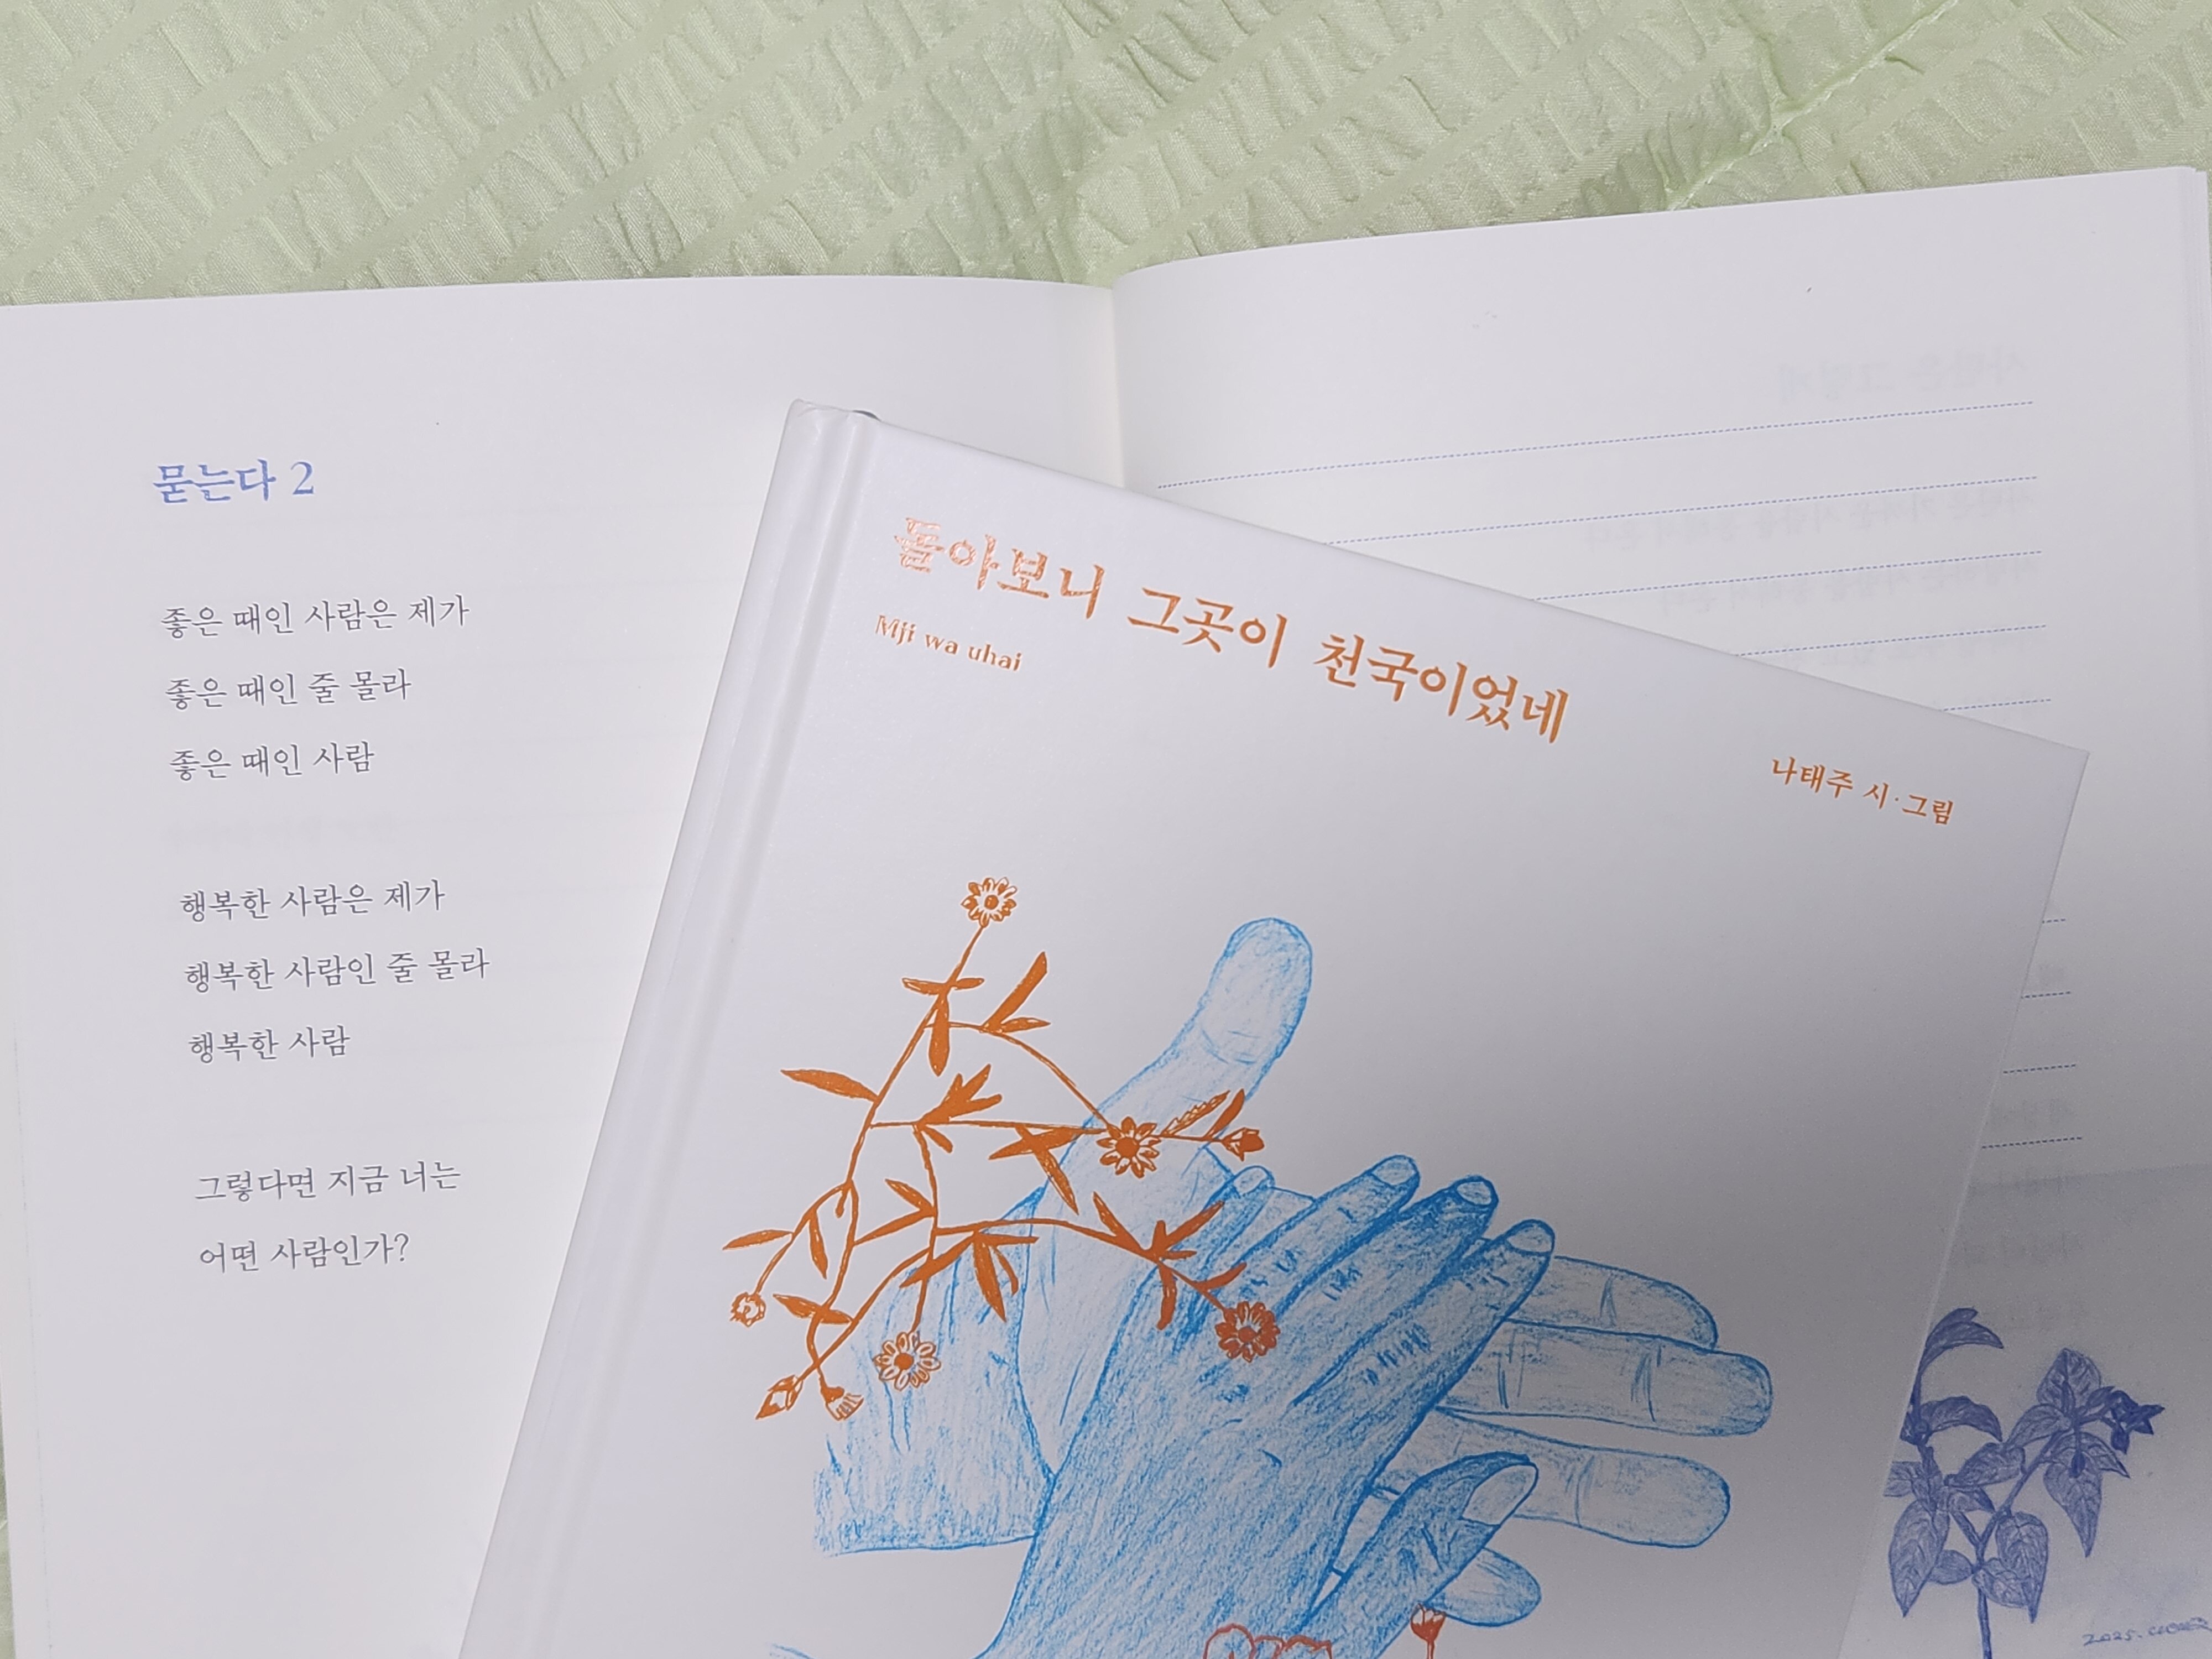 묻는다 2
좋은 때인 사람은 제가
좋은 때인 줄 몰라
좋은 때인 사람
행복한 사람은 제가
행복한 사람인 줄 몰라
행복한 사람
그렇다면 지금 너는
어떤 사람인가?
돌아보니 그곳이 천국이었네
Mji wa uhai
나태주 시·그림
2025.